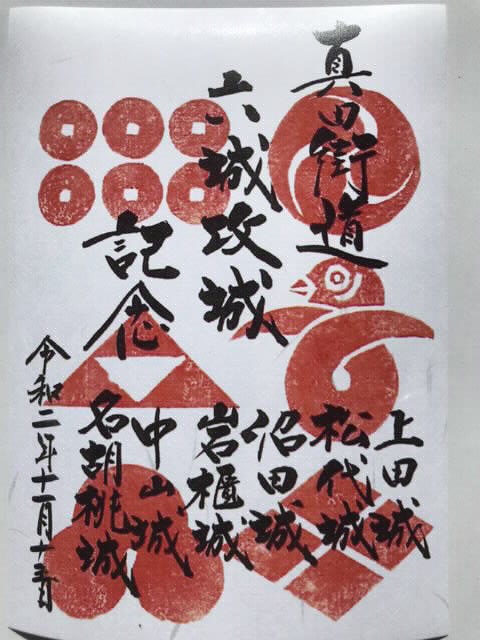 真田街道
六城攻城
記念
上田城
松代城
沼田城
岩櫃城
中山城
名胡桃城
令和二年十一月十五日